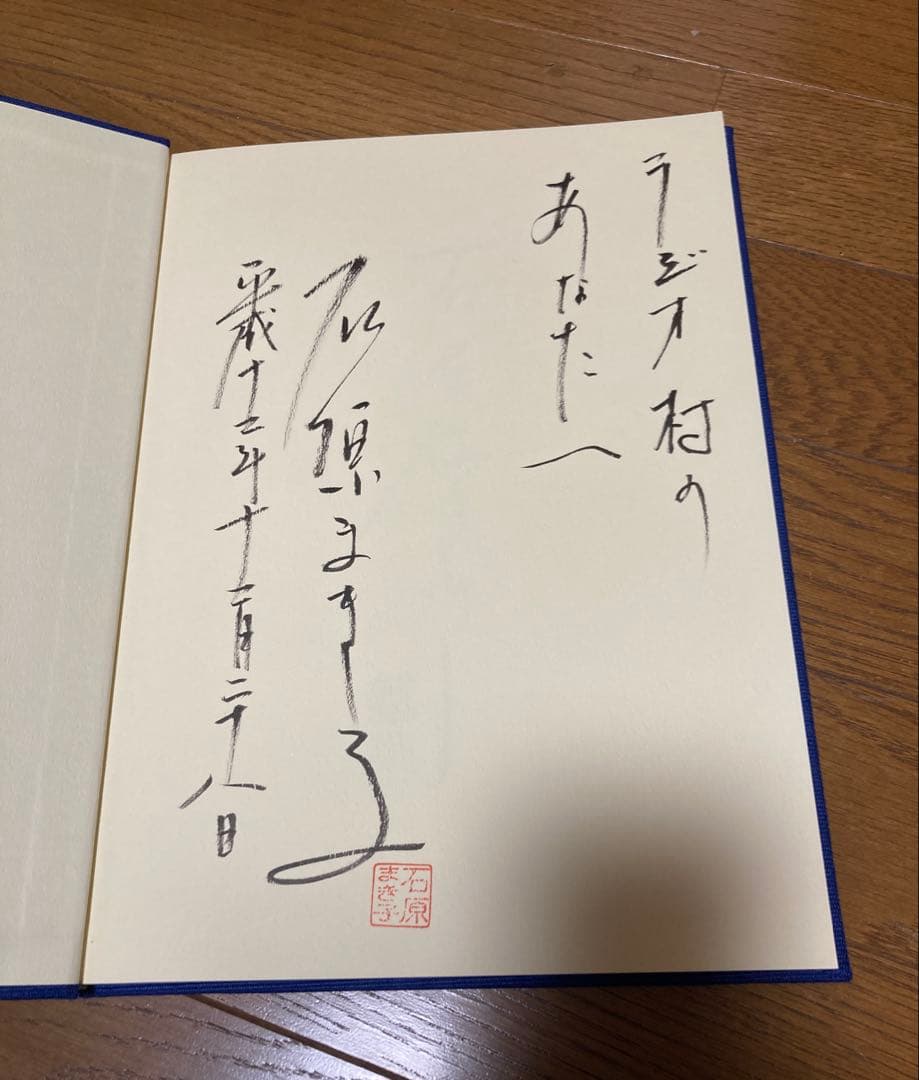 ラジオ村の
あなたへ
石原まき子
平成十三年十一月二十八日
石原
まき子